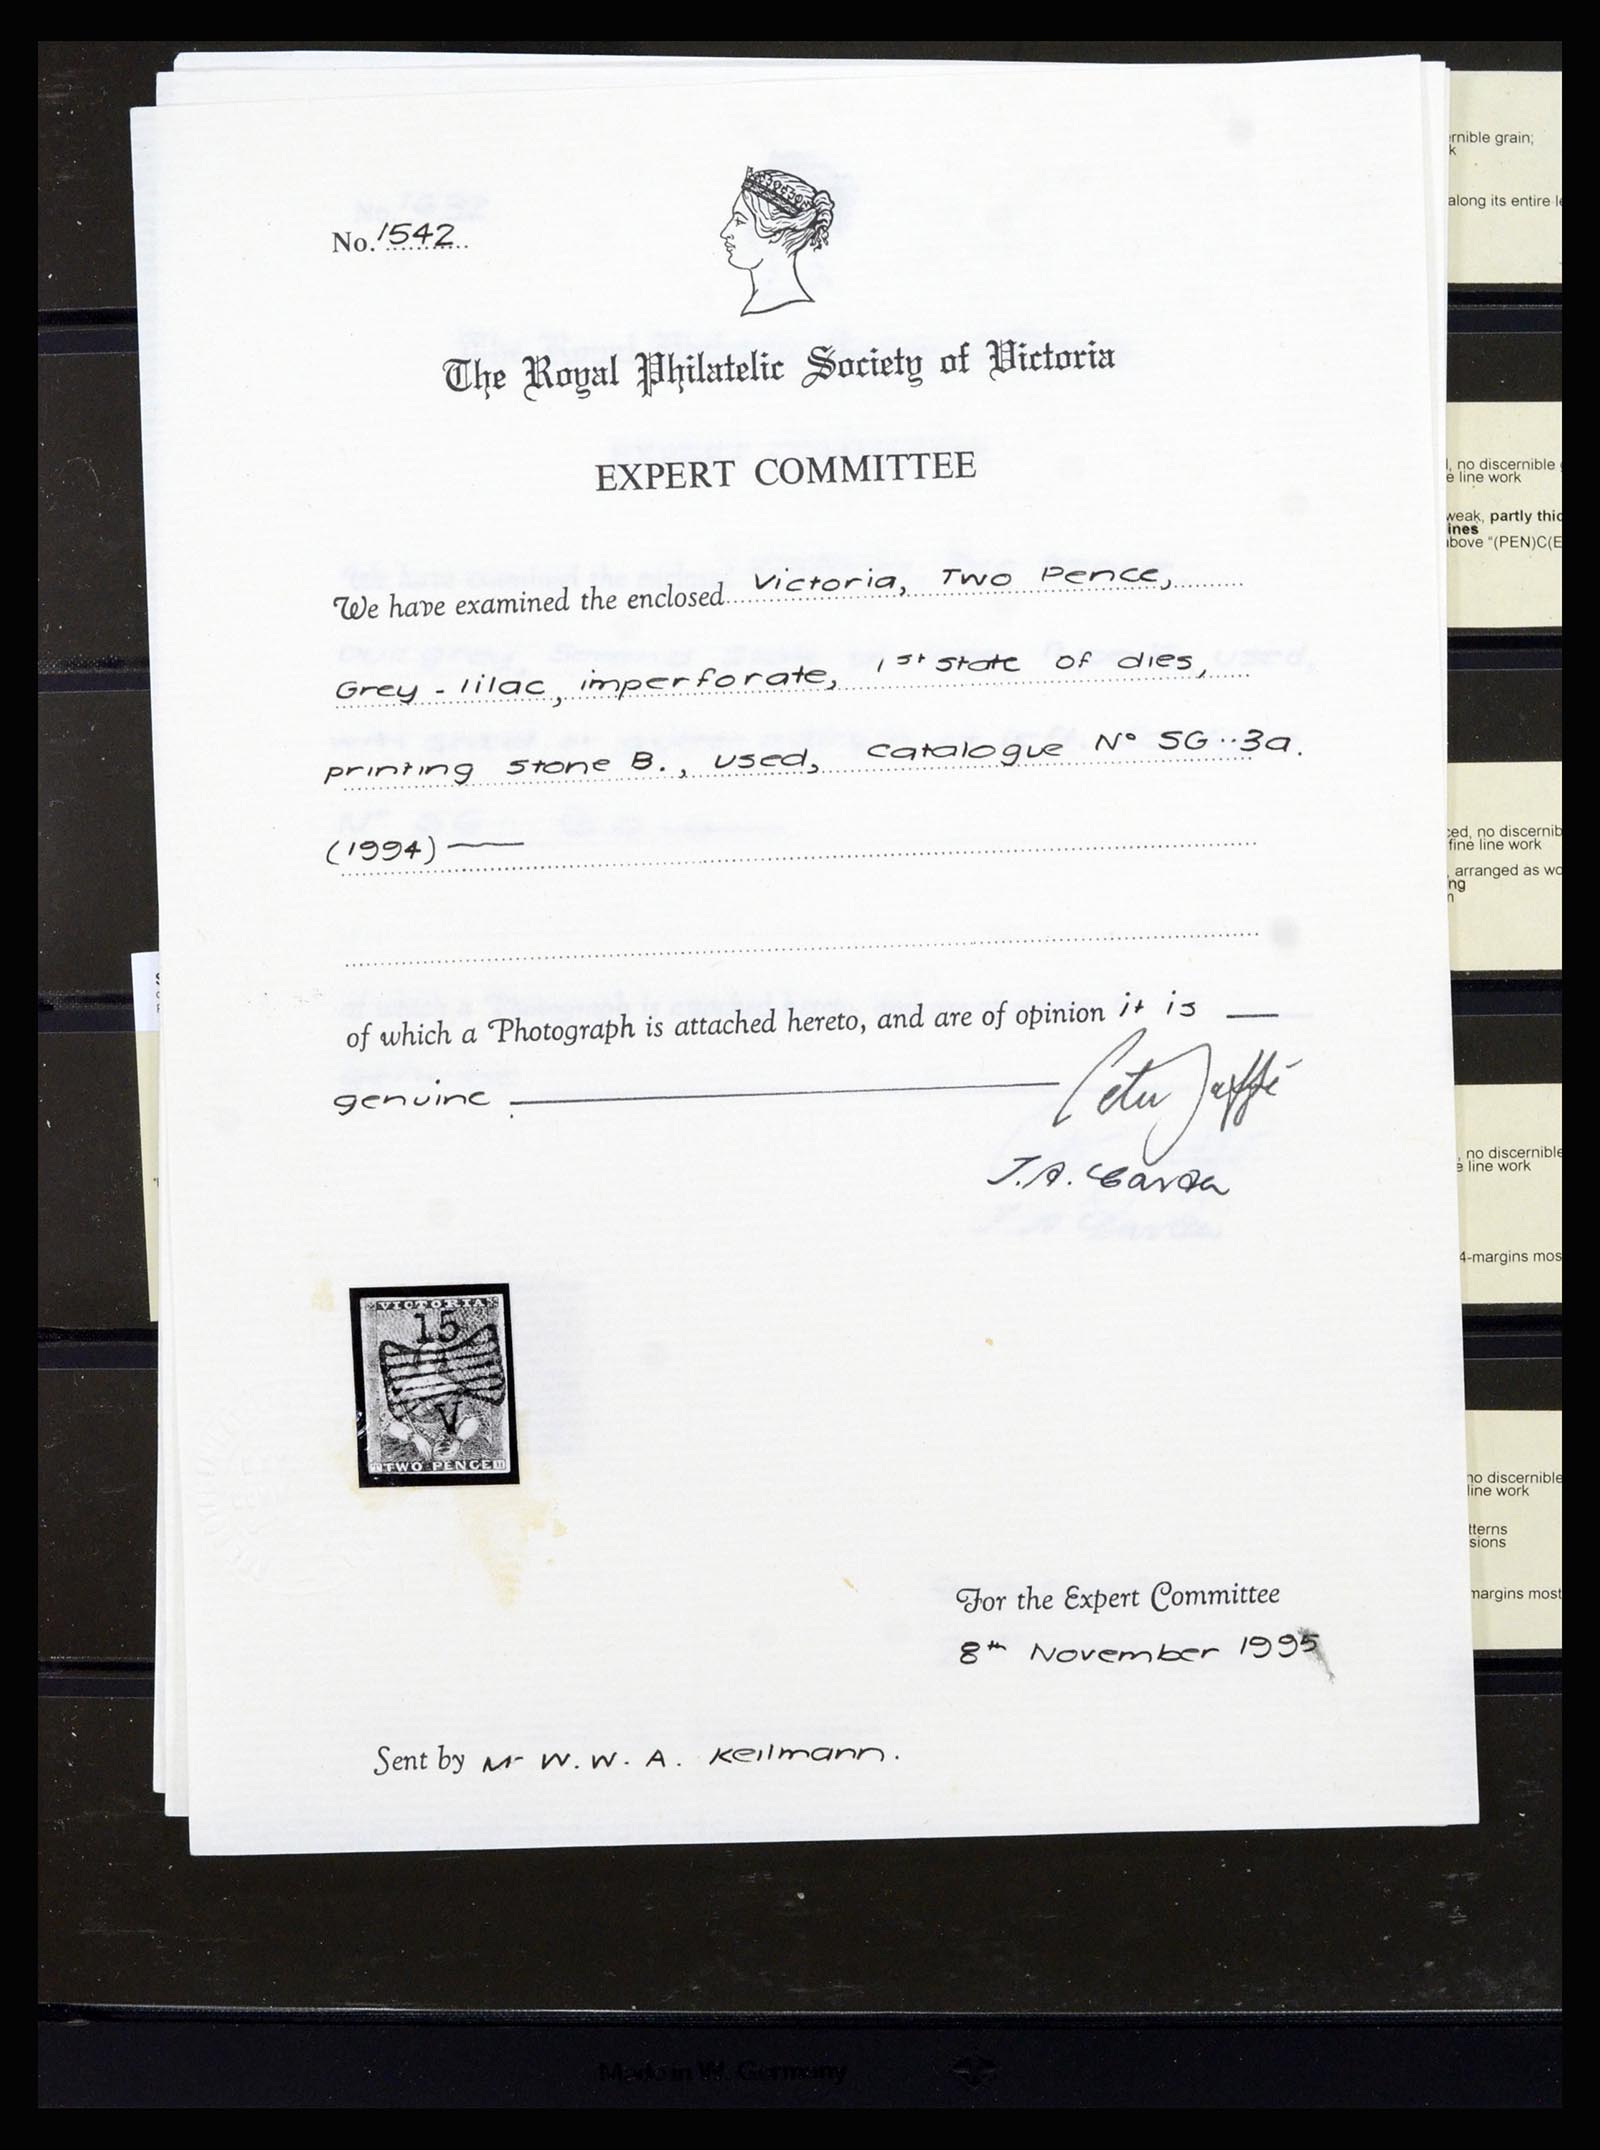 No. 1542
The Royal Philatelic Society of Victoria
EXPERT COMMITTEE
We have examined the enclosed Victoria, Two Pence,
Grey-lilac, imperforate, 1st state of dies,
printing stone B., used, catalogue No SG..3a.
(1994)
of which a Photograph is attached hereto, and are of opinion it is
genuine
Peter Jaffé
J.A. 
VICTORIA
15
V
TWO PENCE
For the Expert Committee
8th November 1995
Sent by Mr W.W.A. Keilmann.
rnible grain;
k
along its entire
, no discernible
e line work
weak, partly thic
ines
bove "(PEN)C(E
ced, no discernib
fine line work
, arranged as wo
ng
, no discernible
e line work
4-margins mos
no discernible
line work
tterns
sions
margins most
Made in W. Germany